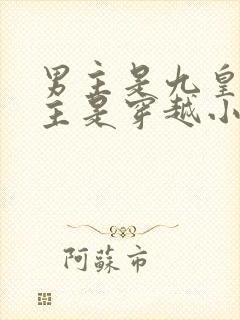 男主是九皇
主是穿越小
阿蘇市